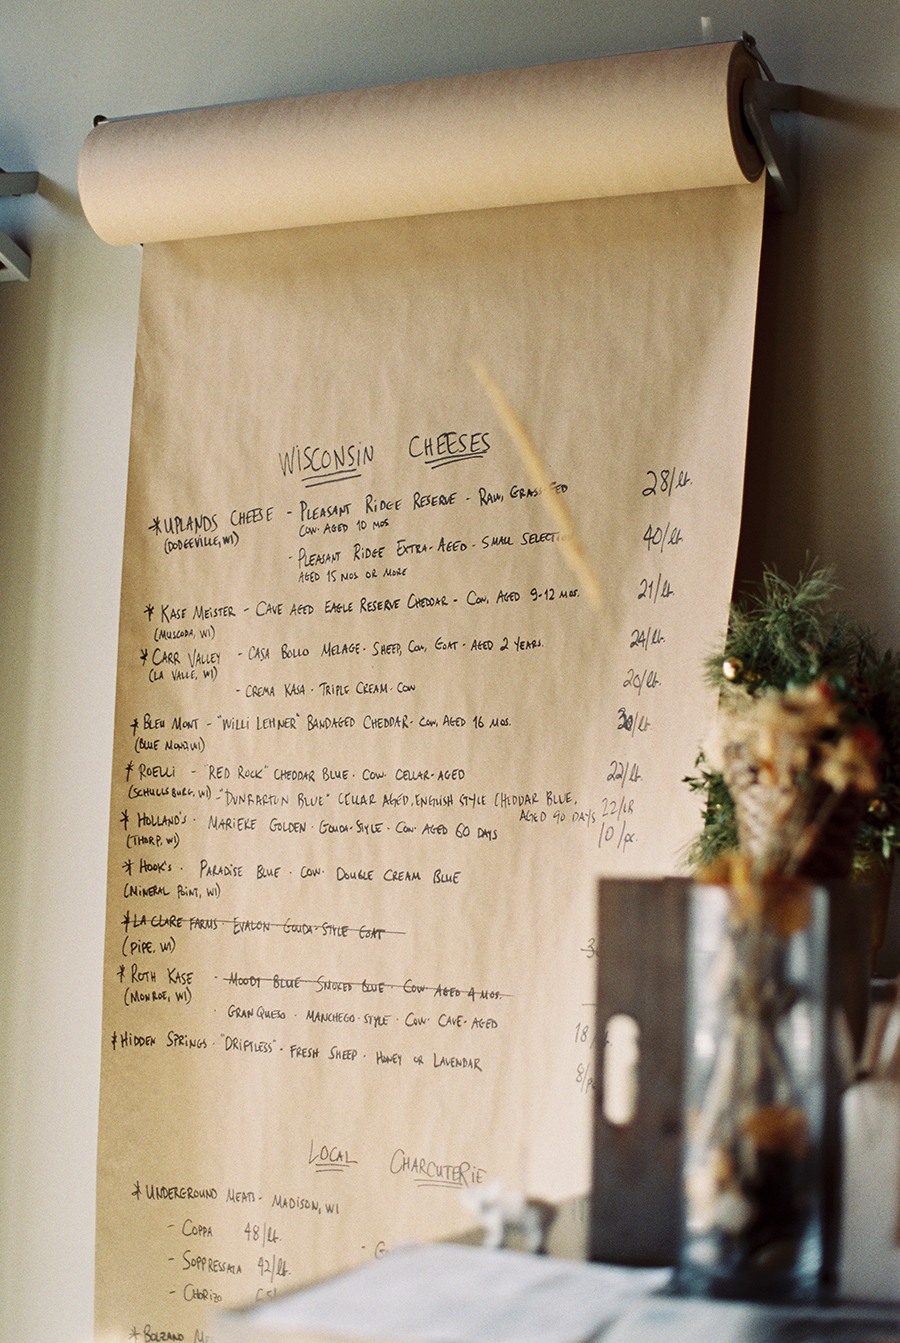 WISCONSIN CHEESES
*UPLANDS CHEESE - PLEASANT RIDGE RESERVE - RAW, GRASS FED 28/lb.
(DODGEVILLE, WI) COW. AGED 10 MOS
- PLEASANT RIDGE EXTRA-AGED - SMALL 40/lb.
AGED 15 MOS OR MORE
* KASE MEISTER - CAVE AGED EAGLE RESERVE CHEDDAR - COW, AGED 9-12 MOS. 21/lb.
(MUSCODA, WI)
* CARR VALLEY - CASA BOLLO MELAGE - SHEEP, COW, GOAT - AGED 2 YEARS. 24/lb.
(LA VALLE, WI)
- CREMA KASA · TRIPLE CREAM · COW 20/lb.
* BLEU MONT - "WILLI LEHNER" BANDAGED CHEDDAR - COW, AGED 16 MOS. /lb.
(BLUE
* ROELLI - "RED ROCK" CHEDDAR BLUE · COW · CELLAR-AGED 22/lb.
(SCHULLSBURG, WI) - "DUNBARTON BLUE" CELLAR AGED, ENGLISH STYLE CHEDDAR BLUE,
AGED 90 DAYS 22/LB
* HOLLAND'S · MARIEKE GOLDEN · GOUDA-STYLE · COW · AGED 60 DAYS 10/pc.
(THORP, WI)
* HOOK'S · PARADISE BLUE · COW · DOUBLE CREAM BLUE
(MINERAL POINT, WI)
* LA CLARE FARMS · EVALON GOUDA-STYLE GOAT
(PIPE, WI)
* ROTH KASE - MOODY BLUE SMOKED BLUE · COW AGED 4 MOS.
(MONROE, WI)
· GRANQUESO · MANCHEGO-STYLE · COW · CAVE-AGED 18/
* HIDDEN SPRINGS · "DRIFTLESS" - FRESH SHEEP · HONEY OR LAVENDAR 8/p
LOCAL CHARCUTERIE
* UNDERGROUND MEATS - MADISON, WI
- COPPA 48/lb.
- SOPPRESSATA 42/lb.
- CHORIZO
* BOLZANO